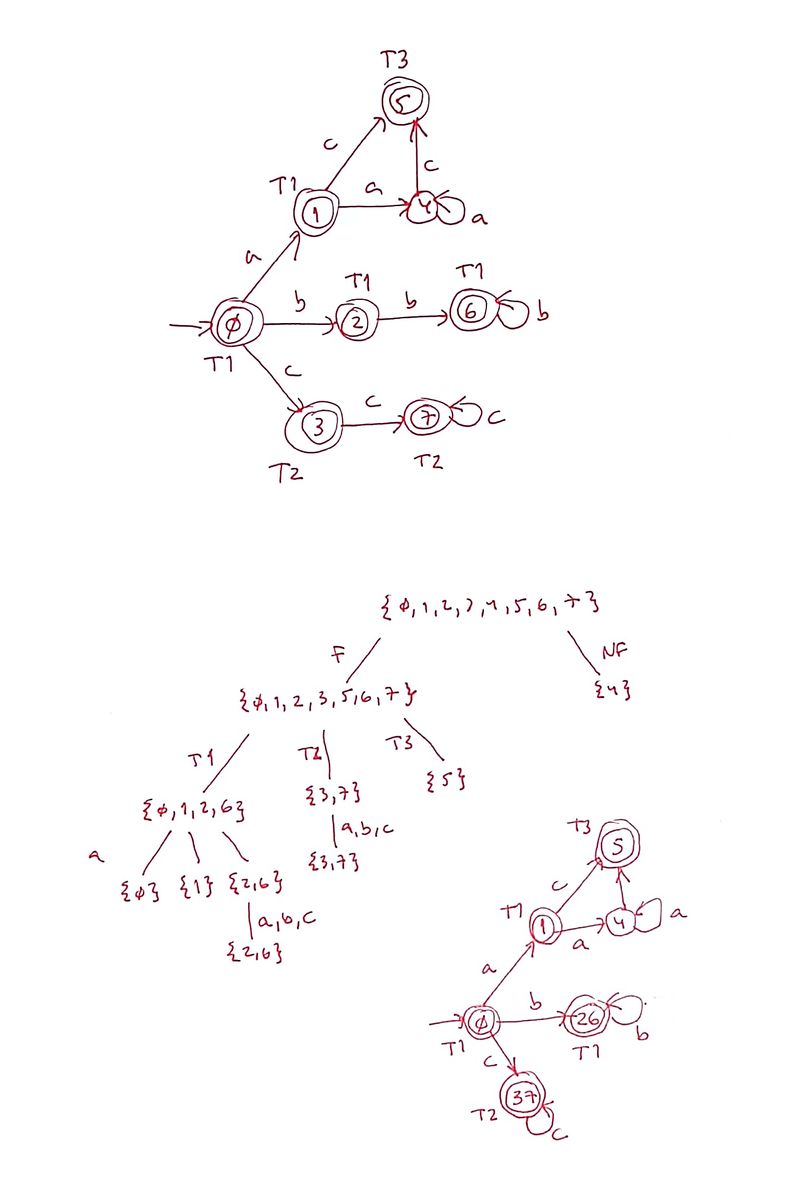 T3
5
c
c
T1
1
a
4
a
a
T1
T1
b
2
b
6
b
φ
T1
c
c
3
7
c
T2
T2
{φ,1,2,3,4,5,6,7}
F
NF
{φ,1,2,3,5,6,7}
{4}
T1
T2
T3
{φ,1,2,6}
{3,7}
{5}
a
a,b,c
{φ} {1} {2,6}
{3,7}
a,b,c
{2,6}
T3
5
c
T1
1
a
4
a
a
b
φ
26
b
T1
T1
c
37
T2
c